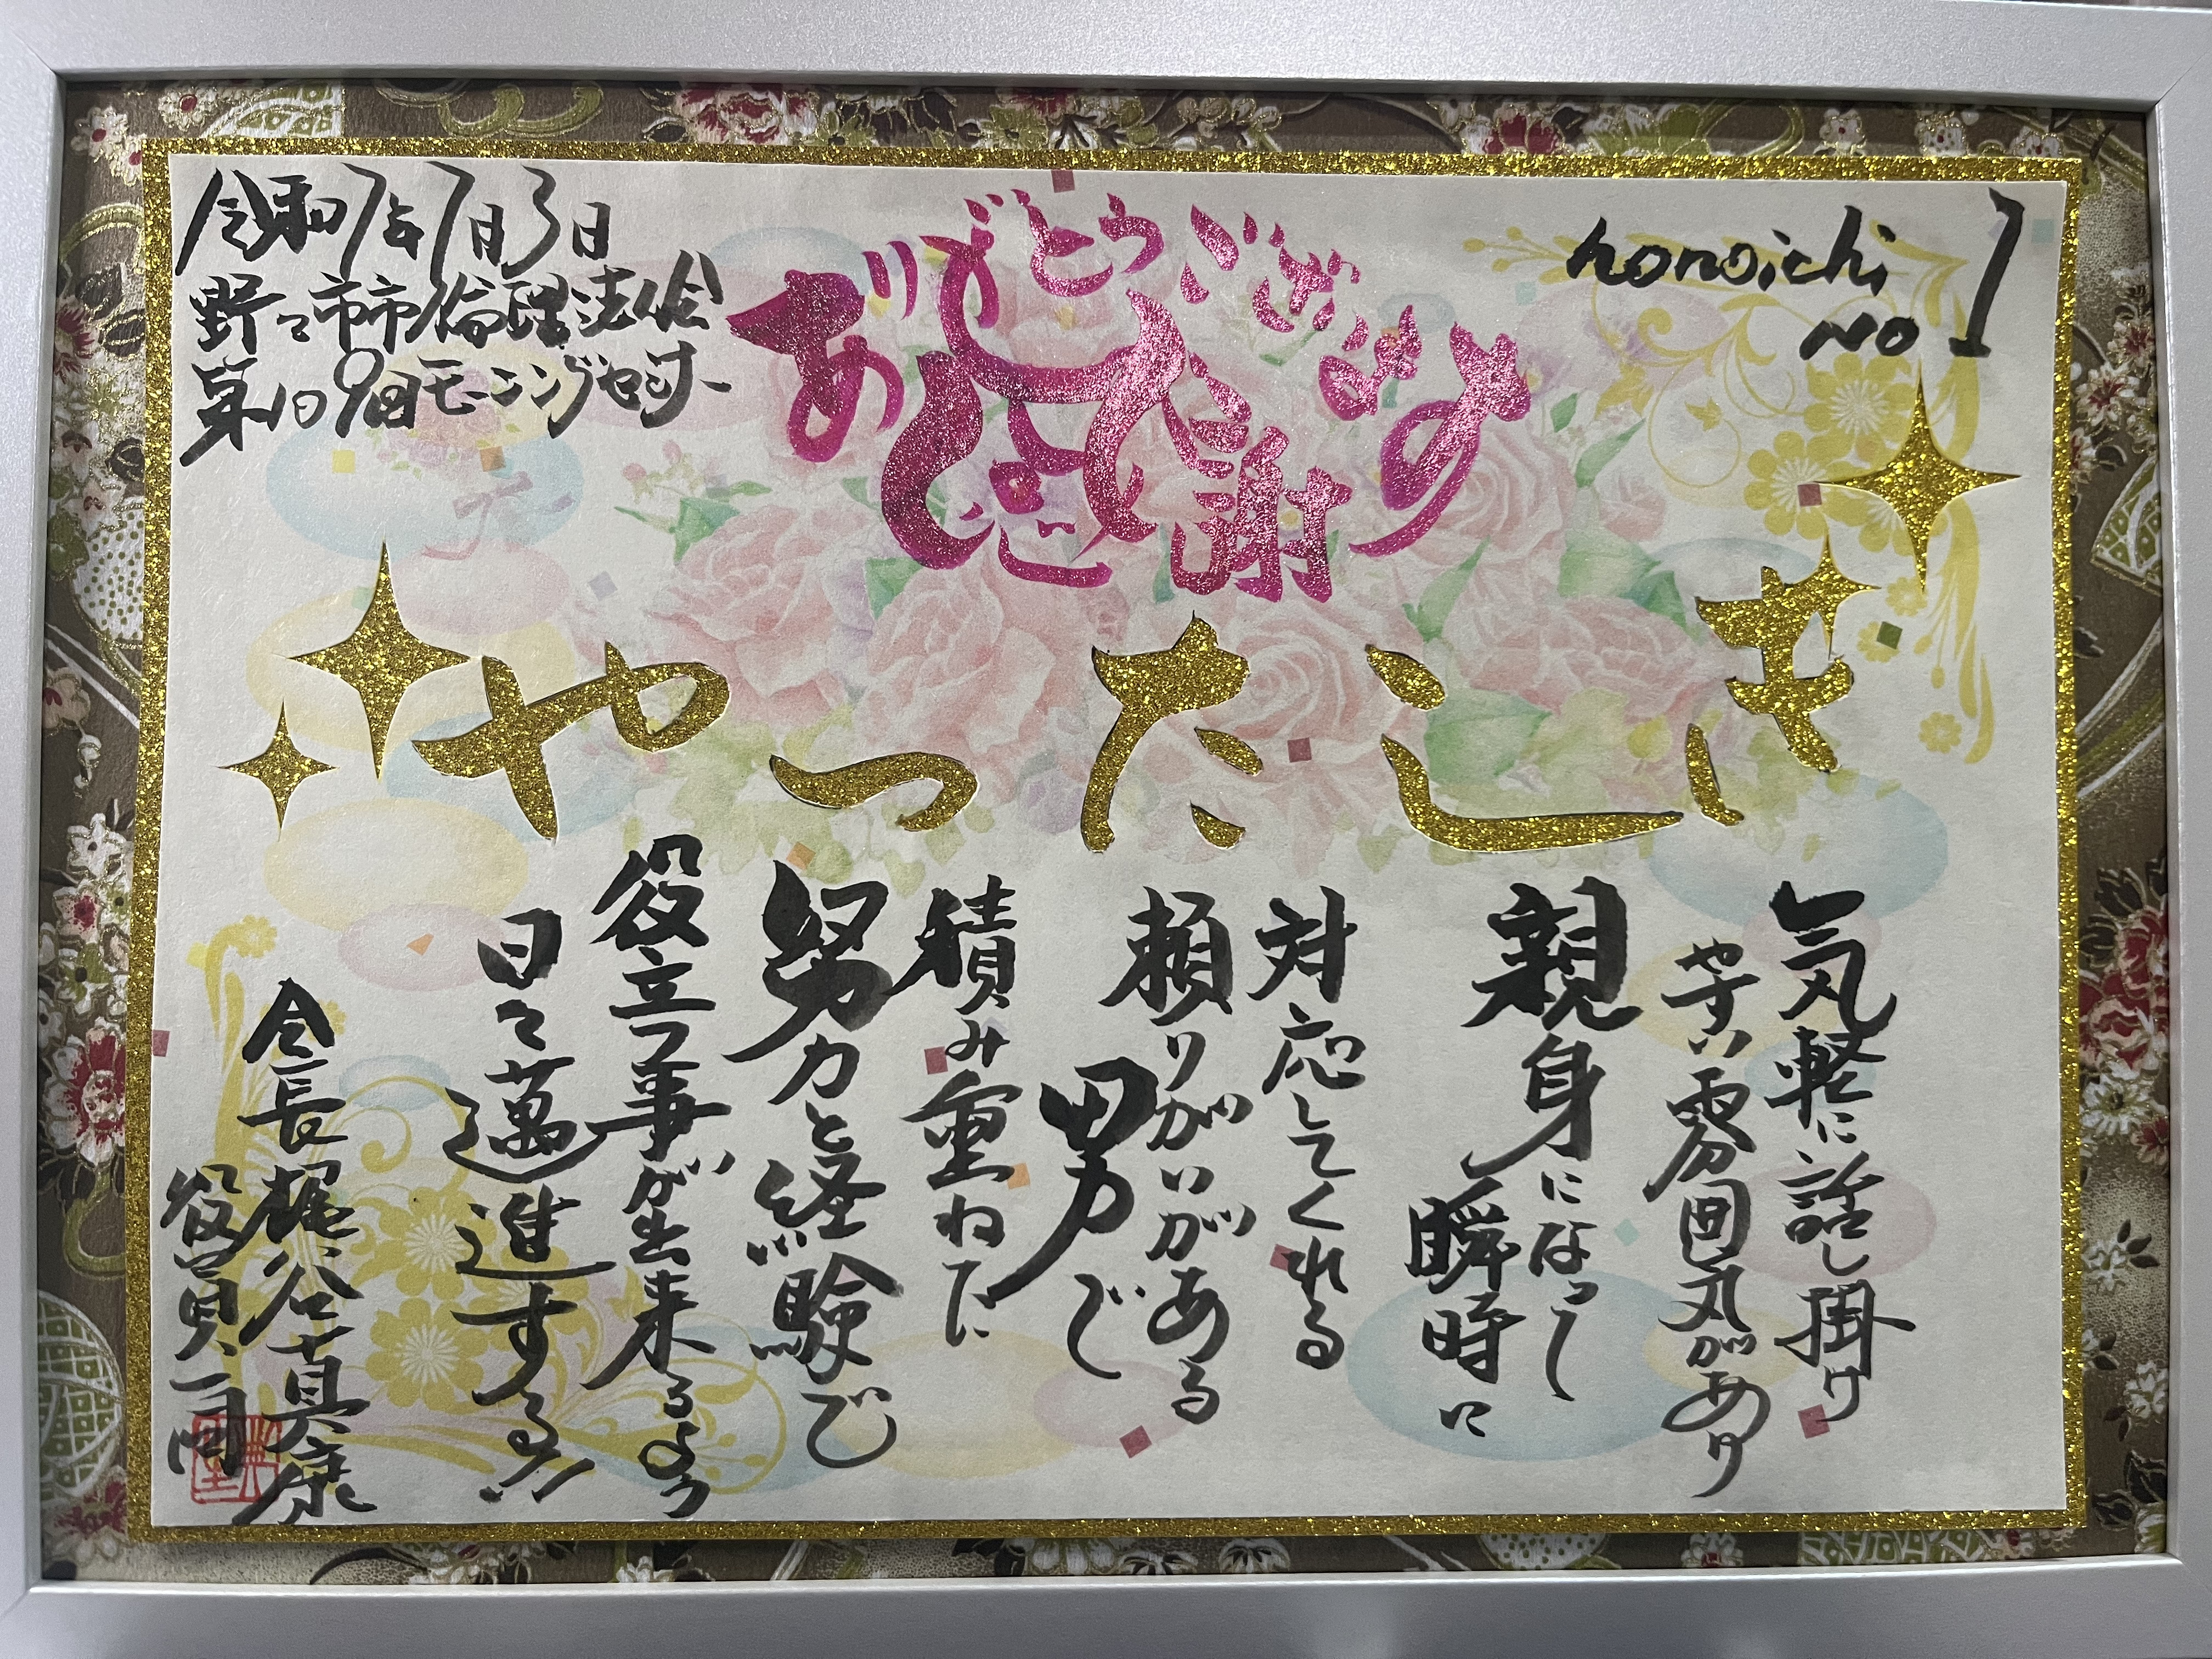 令和7年7月3日
野々市市倫理法人会
第109回モーニングセミナー
ありがとうございます
感謝
nonoichi
NO 1
やったしき
気軽に話し掛け
やすい雰囲気があり
親身になって
瞬時に
対応してくれる
頼りがいがある
男で
積み重ねた
努力と経験で
役立つ事が出来るよう
日々邁進する!!
会長 梶谷真康
役員一同